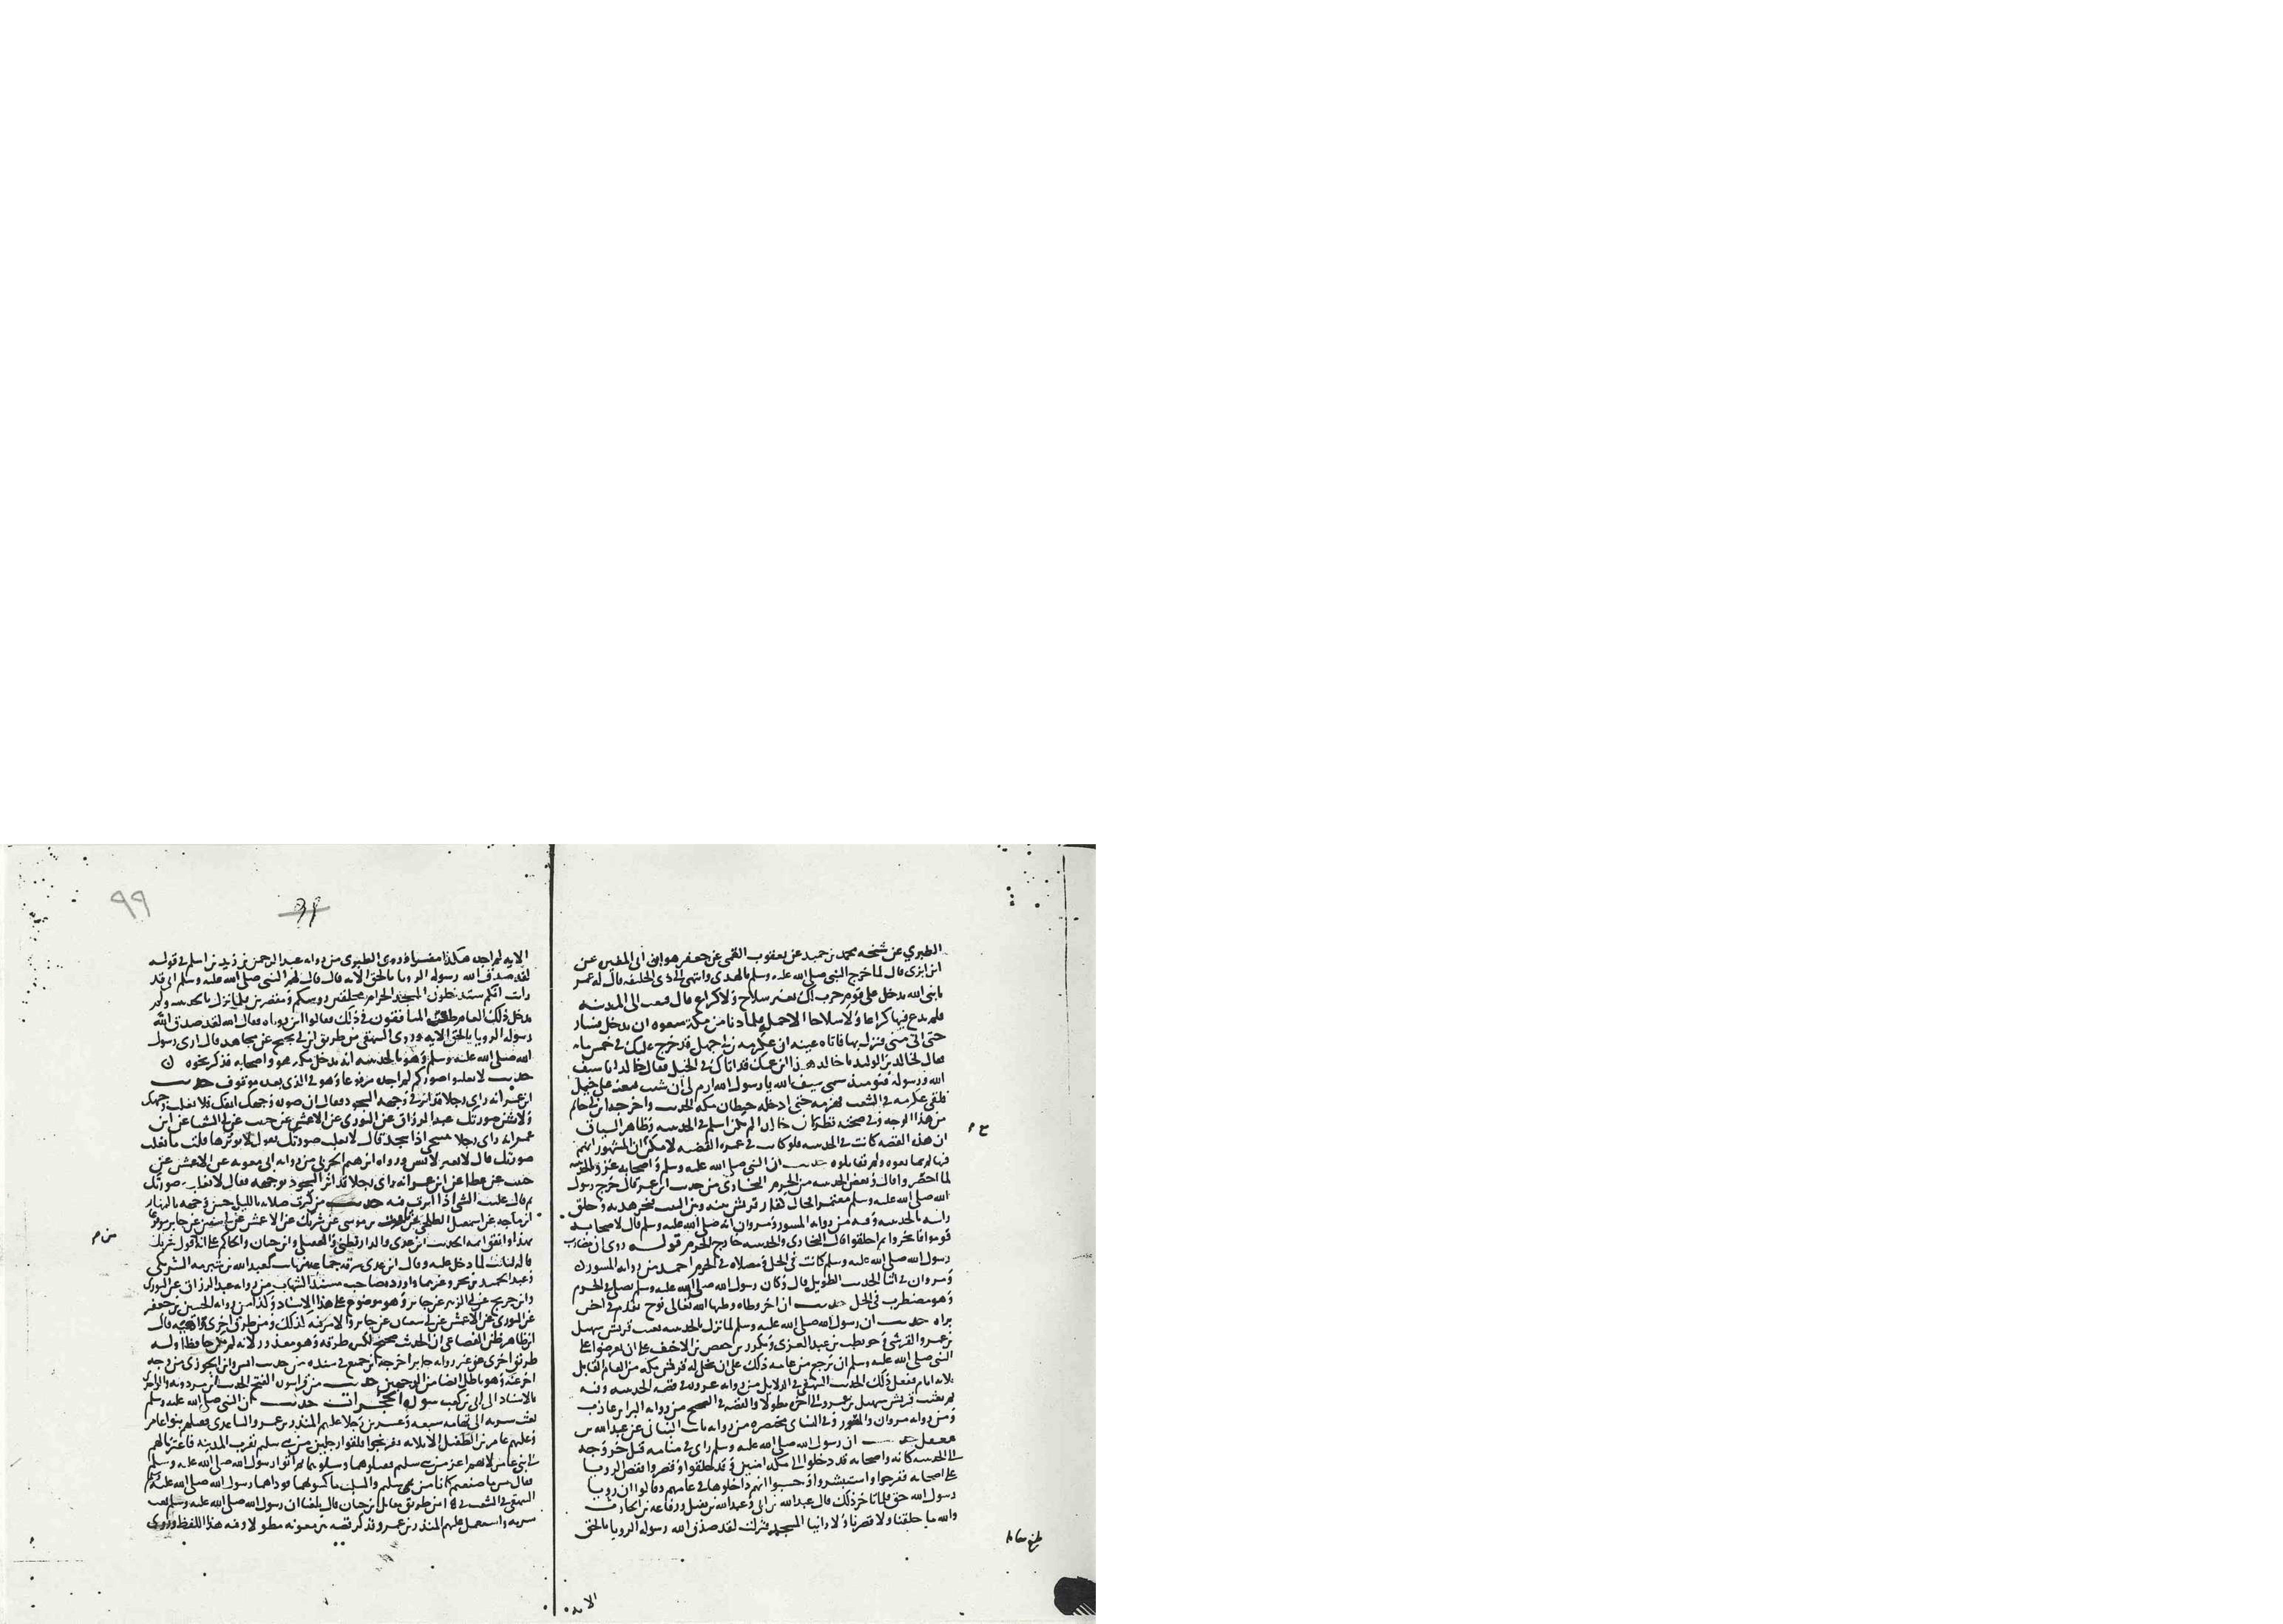 الطبري عن شيخه محمد بن حميد عن يعقوب القمي عن جعفر هو ابن ابي المغيره عن
ابن ابزى قال لما خرج النبي صلى الله عليه وسلم بالهدى وانتهى الى ذى الحليفه قال له عمر
يا نبي الله تدخل على قوم حرب لك بغير سلاح ولا كراع قال فبعث الى المدينه
فلم يدع فيها كراعا ولا سلاحا الا حمله فلما دنا من مكة منعوه ان يدخل فسار
حتى اتى منى فنزل بها فاتاه عينه ان عكرمه بن ابي جهل قد خرج عليك في خمس مايه
فقال لخالد بن الوليد يا خالد هذا ابن عمك قد اتاك في الخيل فقال خالد انا سيف
الله ورسوله فيومئذ سمي سيف الله يا رسول الله ارم بي ان شئت فبعثه على خيل
فلقى عكرمه في الشعب فهزمه حتى ادخله حيطان مكه الحديث واخرجه ابن ابي حاتم
من هذا الوجه وفي صحته نظر لان خالدا لم يكن اسلم في الحديبيه وظاهر السياق
ان هذه القصه كانت في الحديبيه فلو كانت في عمره القضيه لامكن لان المشهور انهم
فيها لم يمانعوه ولم يقاتلوه حديث ان النبي صلى الله عليه وسلم واصحابه
لما احصروا قال وبعض الحديبيه من الحرم البخارى من حديث ابن عمر قال خرج رسول
الله صلى الله عليه وسلم معتمرا فحال كفار قريش بينه وبين البيت فنحر هديه وحلق
راسه بالحديبيه وفيه من روايه المسور ومروان انه صلى الله عليه وسلم قال لاصحابه
قوموا فانحروا ثم احلقوا قال البخارى والحديبيه خارج الحرم قوله روى ان مضارب
رسول الله صلى الله عليه وسلم كانت في الحل ومصلاه في الحرم احمد من روايه المسور
ومروان في اثنا الحديث الطويل قال وكان رسول الله صلى الله عليه وسلم يصلى في الحرم
وهو مضطرب في الحل حديث ان اخر وطاه وطيها الله تعالى بوج تقدم في اخر
براه حديث ان رسول الله صلى الله عليه وسلم لما نزل بالحديبيه بعث قريش سهيل
بن عمرو القرشي وحويطب بن عبد العزى ومكرز بن حفص بن الاخيف على ان يعرضوا على
النبي صلى الله عليه وسلم ان يرجع من عامه ذلك على ان تخلى له قريش مكه من العام القابل
ثلاثه ايام ففعل ذلك الحديث البيهقى في الدلايل من روايه عروه في قصه الحديبيه وفيه
ثم بعثت قريش سهيل بن عمرو الى اخره مطولا والقصه في الصحيح من روايه البرا بن عازب
ومن روايه مروان والمسور وفي النساى مختصره من روايه ثابت البنانى عن عبد الله بن
مغفل حديث ان رسول الله صلى الله عليه وسلم راى في منامه قبل خروجه
الى الحديبيه كانه واصحابه قد دخلوا الى مكه امنين وقد حلقوا وقصروا فقص الرويا
على اصحابه ففرحوا واستبشروا وحسبوا انهم داخلوها في عامهم وقالوا ان رويا
رسول الله حق فلما تاخر ذلك قال عبد الله بن ابي وعبد الله بن نفيل ورفاعه بن الحارث
والله ما حلقنا ولا قصرنا ولا راينا المسجد فنزلت لقد صدق الله رسوله الرويا بالحق
الايه
٩٩
الايه لم اجده هكذا مفسرا وروى الطبرى من روايه عبد الرحمن بن زيد بن اسلم في قوله
لقد صدق الله رسوله الرويا بالحق الايه قال قال لهم النبي صلى الله عليه وسلم انى قد
رايت انكم ستدخلون المسجد الحرام محلقين رووسكم ومقصرين فلما نزل بالحديبيه ولم
يدخل ذلك العام طعن المنافقون في ذلك فقالوا اين روياه فقال الله لقد صدق الله
رسوله الرويا بالحق الايه وروى البيهقى من طريق ابن ابي نجيح عن مجاهد قال ارى رسول
الله صلى الله عليه وسلم وهو بالحديبيه انه يدخل مكه هو واصحابه فذكر نحوه
حديث لا تعلبوا صوركم لم اجده مرفوعا وهو في الذى بعده موقوف حديث
ابن عمر انه راى رجلا قد اثر في وجهه السجود فقال ان صوره وجهك انفك فلا تعلب وجهك
ولا تشن صورتك عبد الرزاق عن الثورى عن الاعمش عن حبيب عن ابي الشعثا عن ابن
عمر انه راى رجلا ينتحى اذا سجد قال لا تعلب صورتك يقول لا توثرها قلت ما تعلب
صورتك قال لا تغير لا تشن ورواه ابرهيم الحربى من روايه ابى معويه عن الاعمش عن
حبيب عن عطا عن ابن عمر انه راى رجلا قد اثر السجود بوجهه فقال لا تعلب صورتك
حديث من كثرت صلاته بالليل حسن وجهه بالنهار
ابن ماجه عن اسمعيل الطلحى عن ثابت بن موسى عن شريك عن الاعمش عن ابي سفين عن جابر مرفوعا
بهذا واتفق ايمه الحديث ابن عدى والدارقطنى والعقيلى وابن حبان والحاكم على انه قول شريك
قاله لثابت لما دخل عليه وقال ابن عدى سرقه جماعه من ثابت كعبد الله بن شبرمه الشريكى
وعبد الحميد بن بحر وغيرهما واورده صاحب مسند الشهاب من روايه عبد الرزاق عن الثورى
وابن جريج عن ابي الزبير عن جابر وهو موضوع على هذا الاسناد وكذا من روايه الحسين بن حفص
عن الثورى عن الاعمش عن ابي سفيان عن جابر
ابن طاهر ظن القضاعى ان الحديث صحيح لكثره طرقه وهو معذور لانه لم يكن حافظا وله
طرق اخرى من غير روايه جابر اخرجه ابن جميع في مسنده من حديث انس وابن الجوزى من وجه
اخر عنه وهو باطل ايضا من الوجهين حديث من قرا سوره الفتح الحديث ابن مردويه والواحدى
بالاسناد الى ابي بن كعب سورة الحجرات حديث ان النبي صلى الله عليه وسلم
بعث سريه الى تهامه سبعه وعشرين رجلا عليهم المنذر بن عمرو الساعدى فقتلهم بنوا عامر
وعليهم عامر بن الطفيل الا ثلاثه نفر نجوا فلقوا رجلين من بنى سليم بقرب المدينه فاعتزيا لهم
الى بنى عامر لانهم اعز من بنى سليم فقتلوهما وسلبوهما ثم اتوا رسول الله صلى الله عليه وسلم
فقال بيس ما صنعتم كانا من بنى سليم والسلب ما كسوتهما فوداهما رسول الله صلى الله عليه وسلم
البيهقى في الشعب من طريق مقاتل بن حيان قال بلغنا ان رسول الله صلى الله عليه وسلم بعث
سريه واستعمل عليهم المنذر بن عمرو فذكر قصه بير معونه مطولا وفيه هذا اللفظ وروى